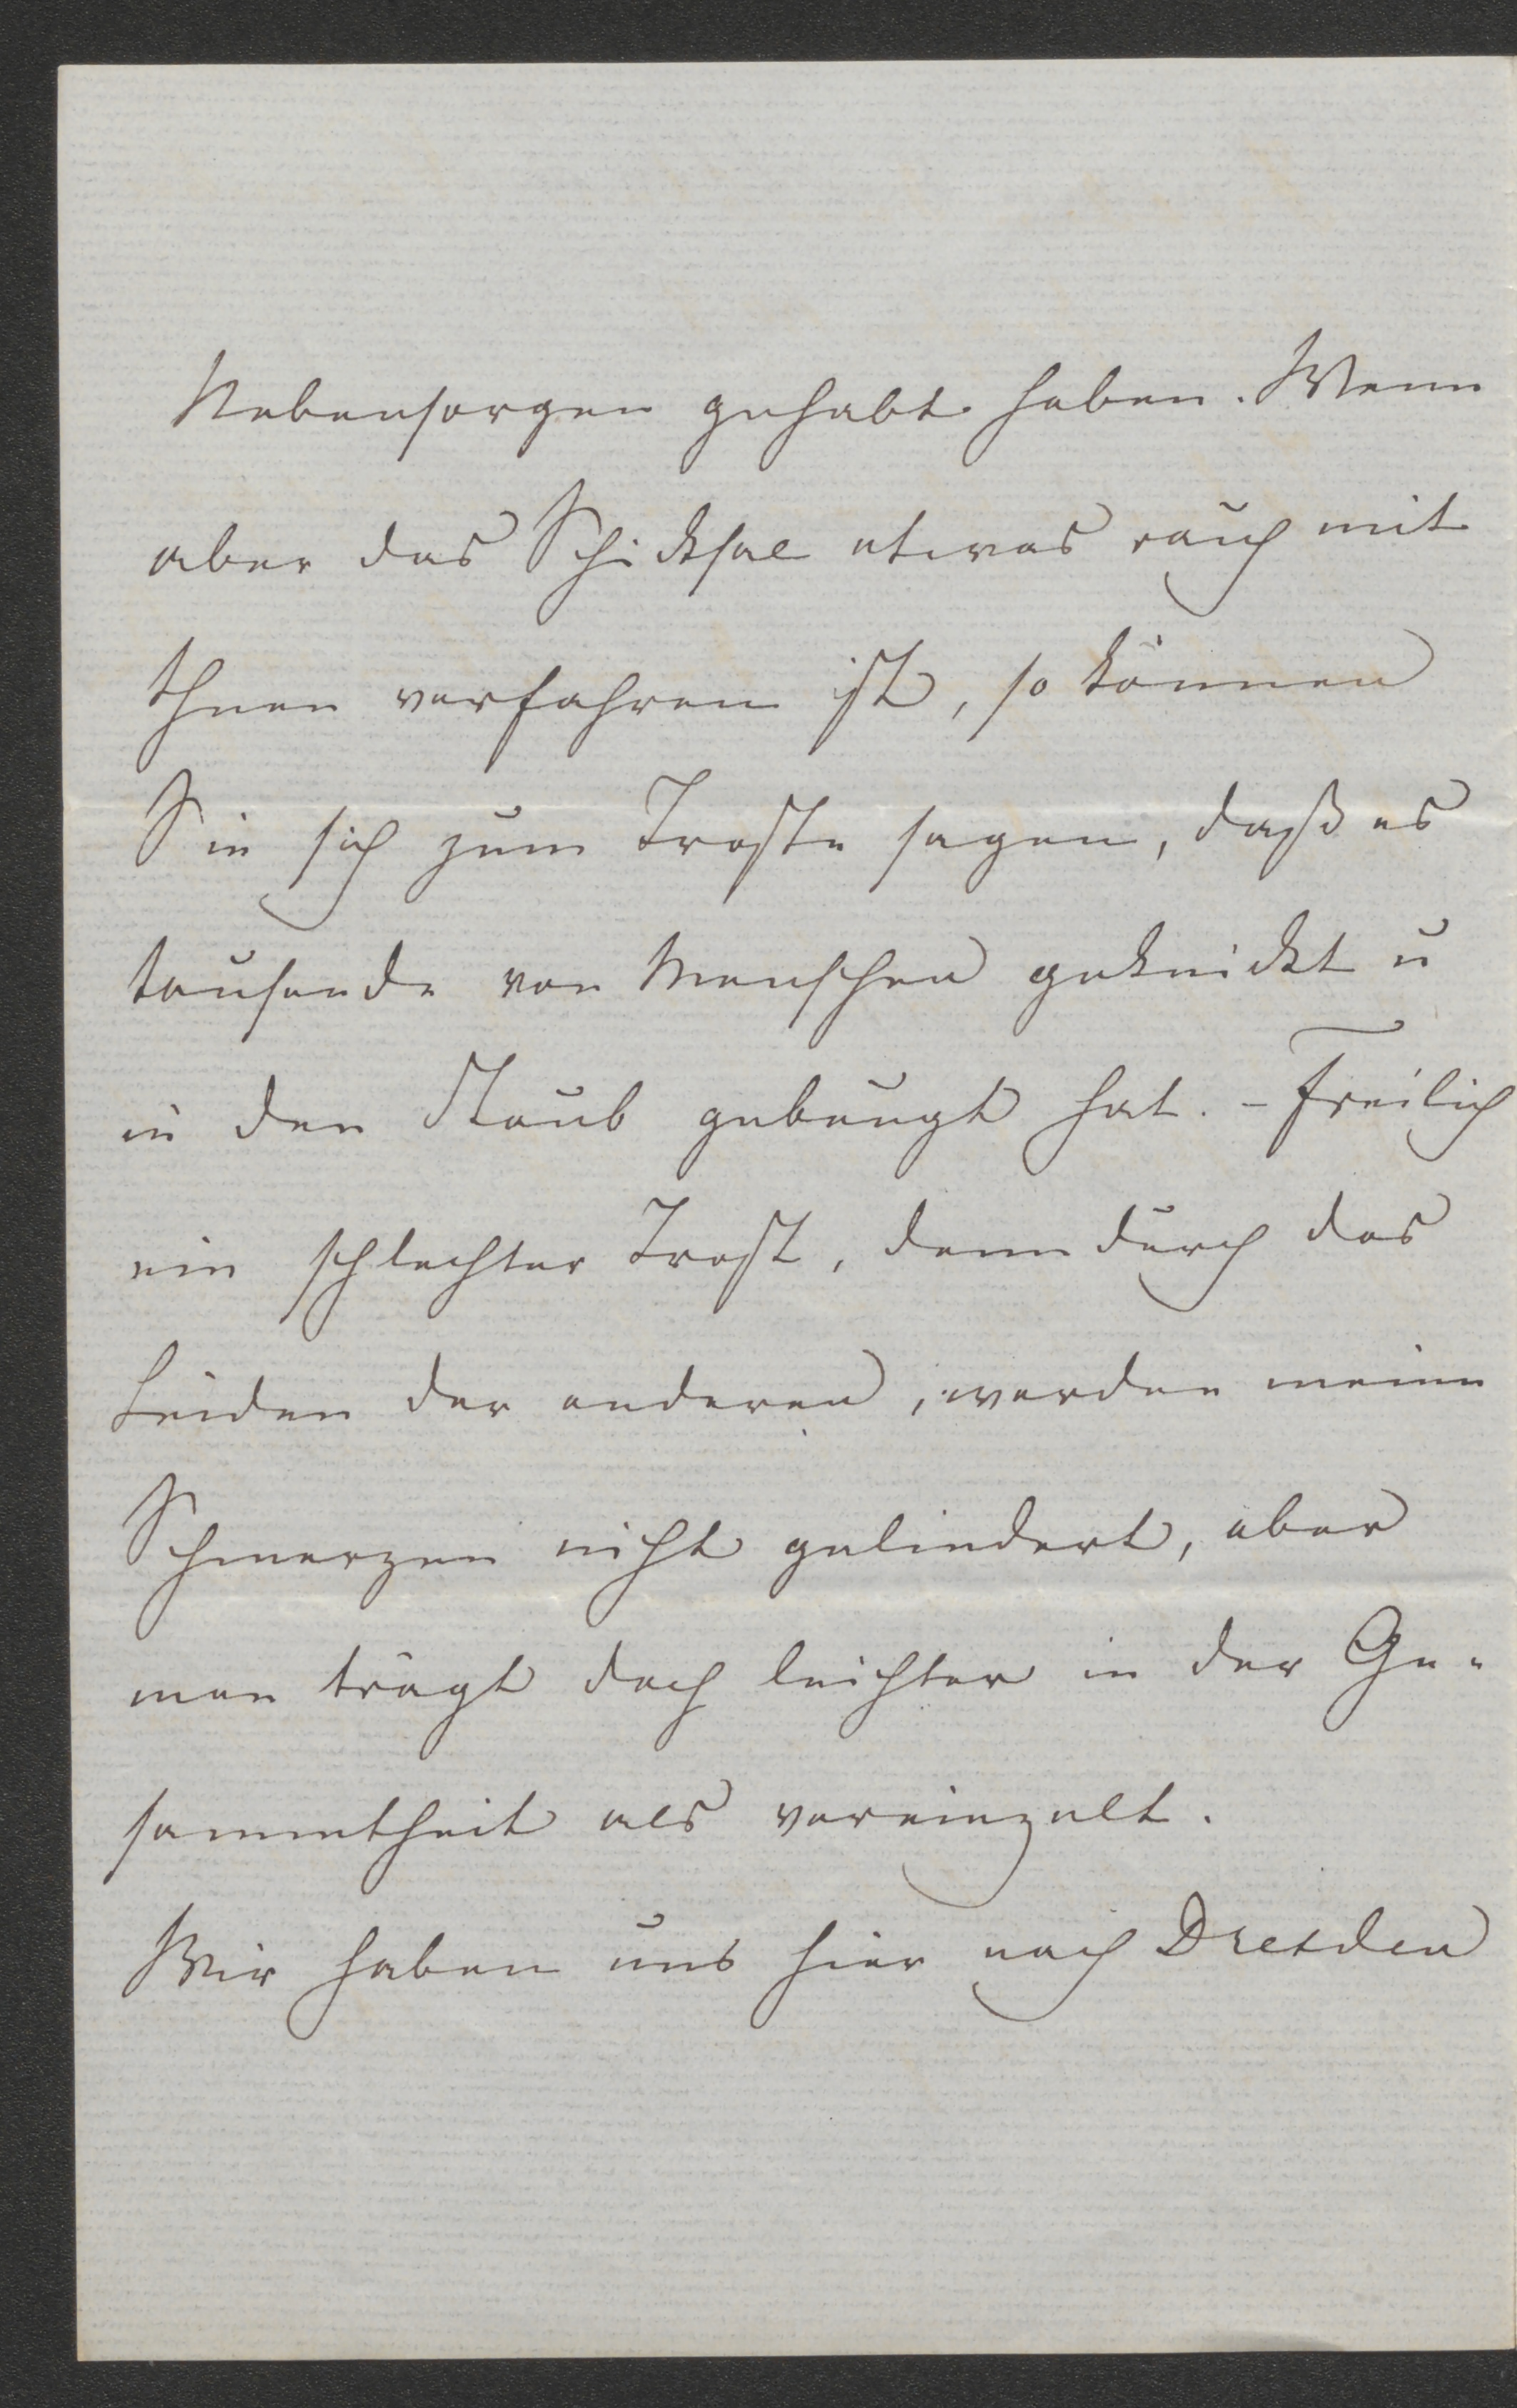 Nebensorgen gehabt haben. Wenn
aber das Schicksal etwas rauh mit
Ihnen verfahren ist, so können
Sie sich zum Troste sagen, daß es
tausende von Menschen geknickt u
in den Staub gebeugt hat. - Freilich
ein schlechter Trost, denn durch das
Leiden der anderen, werden meine
Schmerzen nicht gelindert, aber
man trägt doch leichter in der Ge-
sammtheit als vereinzelt.
Wir haben uns hier nach Dresden